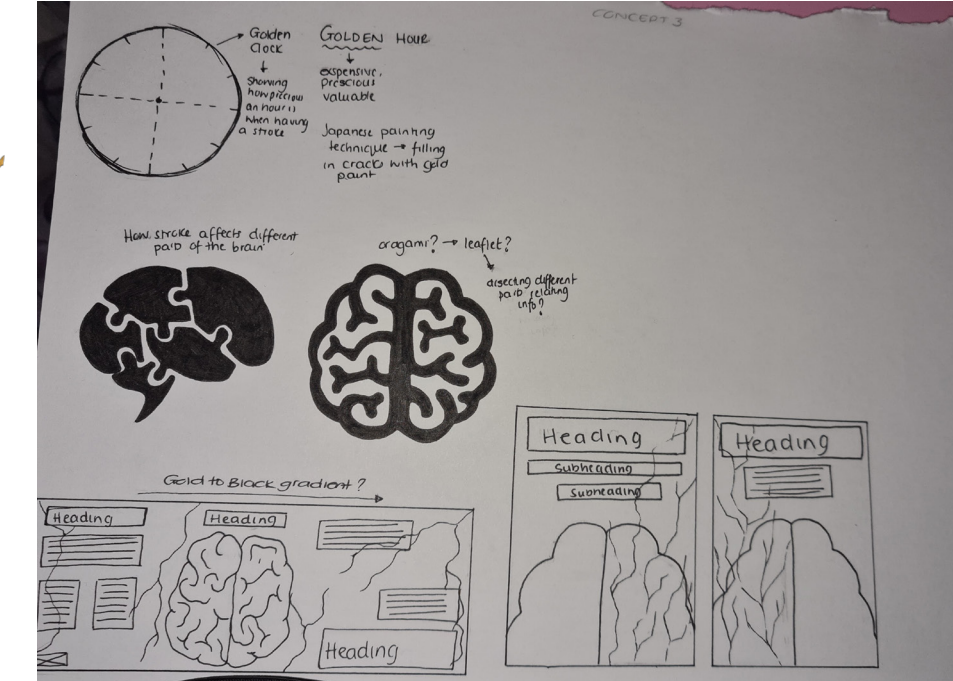 CONCEPT 3
Golden
Clock
Showing
how precious
an hour is
when having
a stroke
GOLDEN HOUR
exspensive,
prescious
valuable
Japanese painting
technique → filling
in cracks with gold
paint
How stroke affects different
of the brain
oragami? → leaflet?
disecting different
relating
info?
Gold to Black gradient?
Heading
Heading
Heading
Heading
Subheading
Subheading
Heading